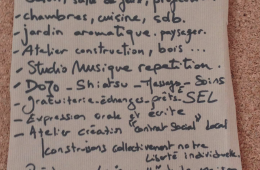 chambres, cuisine, sdb.
jardin aromatique. paysager.
- Atelier construction, bois ...
- Studio Musique repetition.
- DoJo - Shiatsu - Massage - Soins
gratuiterie. échanges. prêts. SEL
- Expression orale et écrite
- Atelier création "contrat social" local
construisons collectivement notre
Liberté Individuelle.